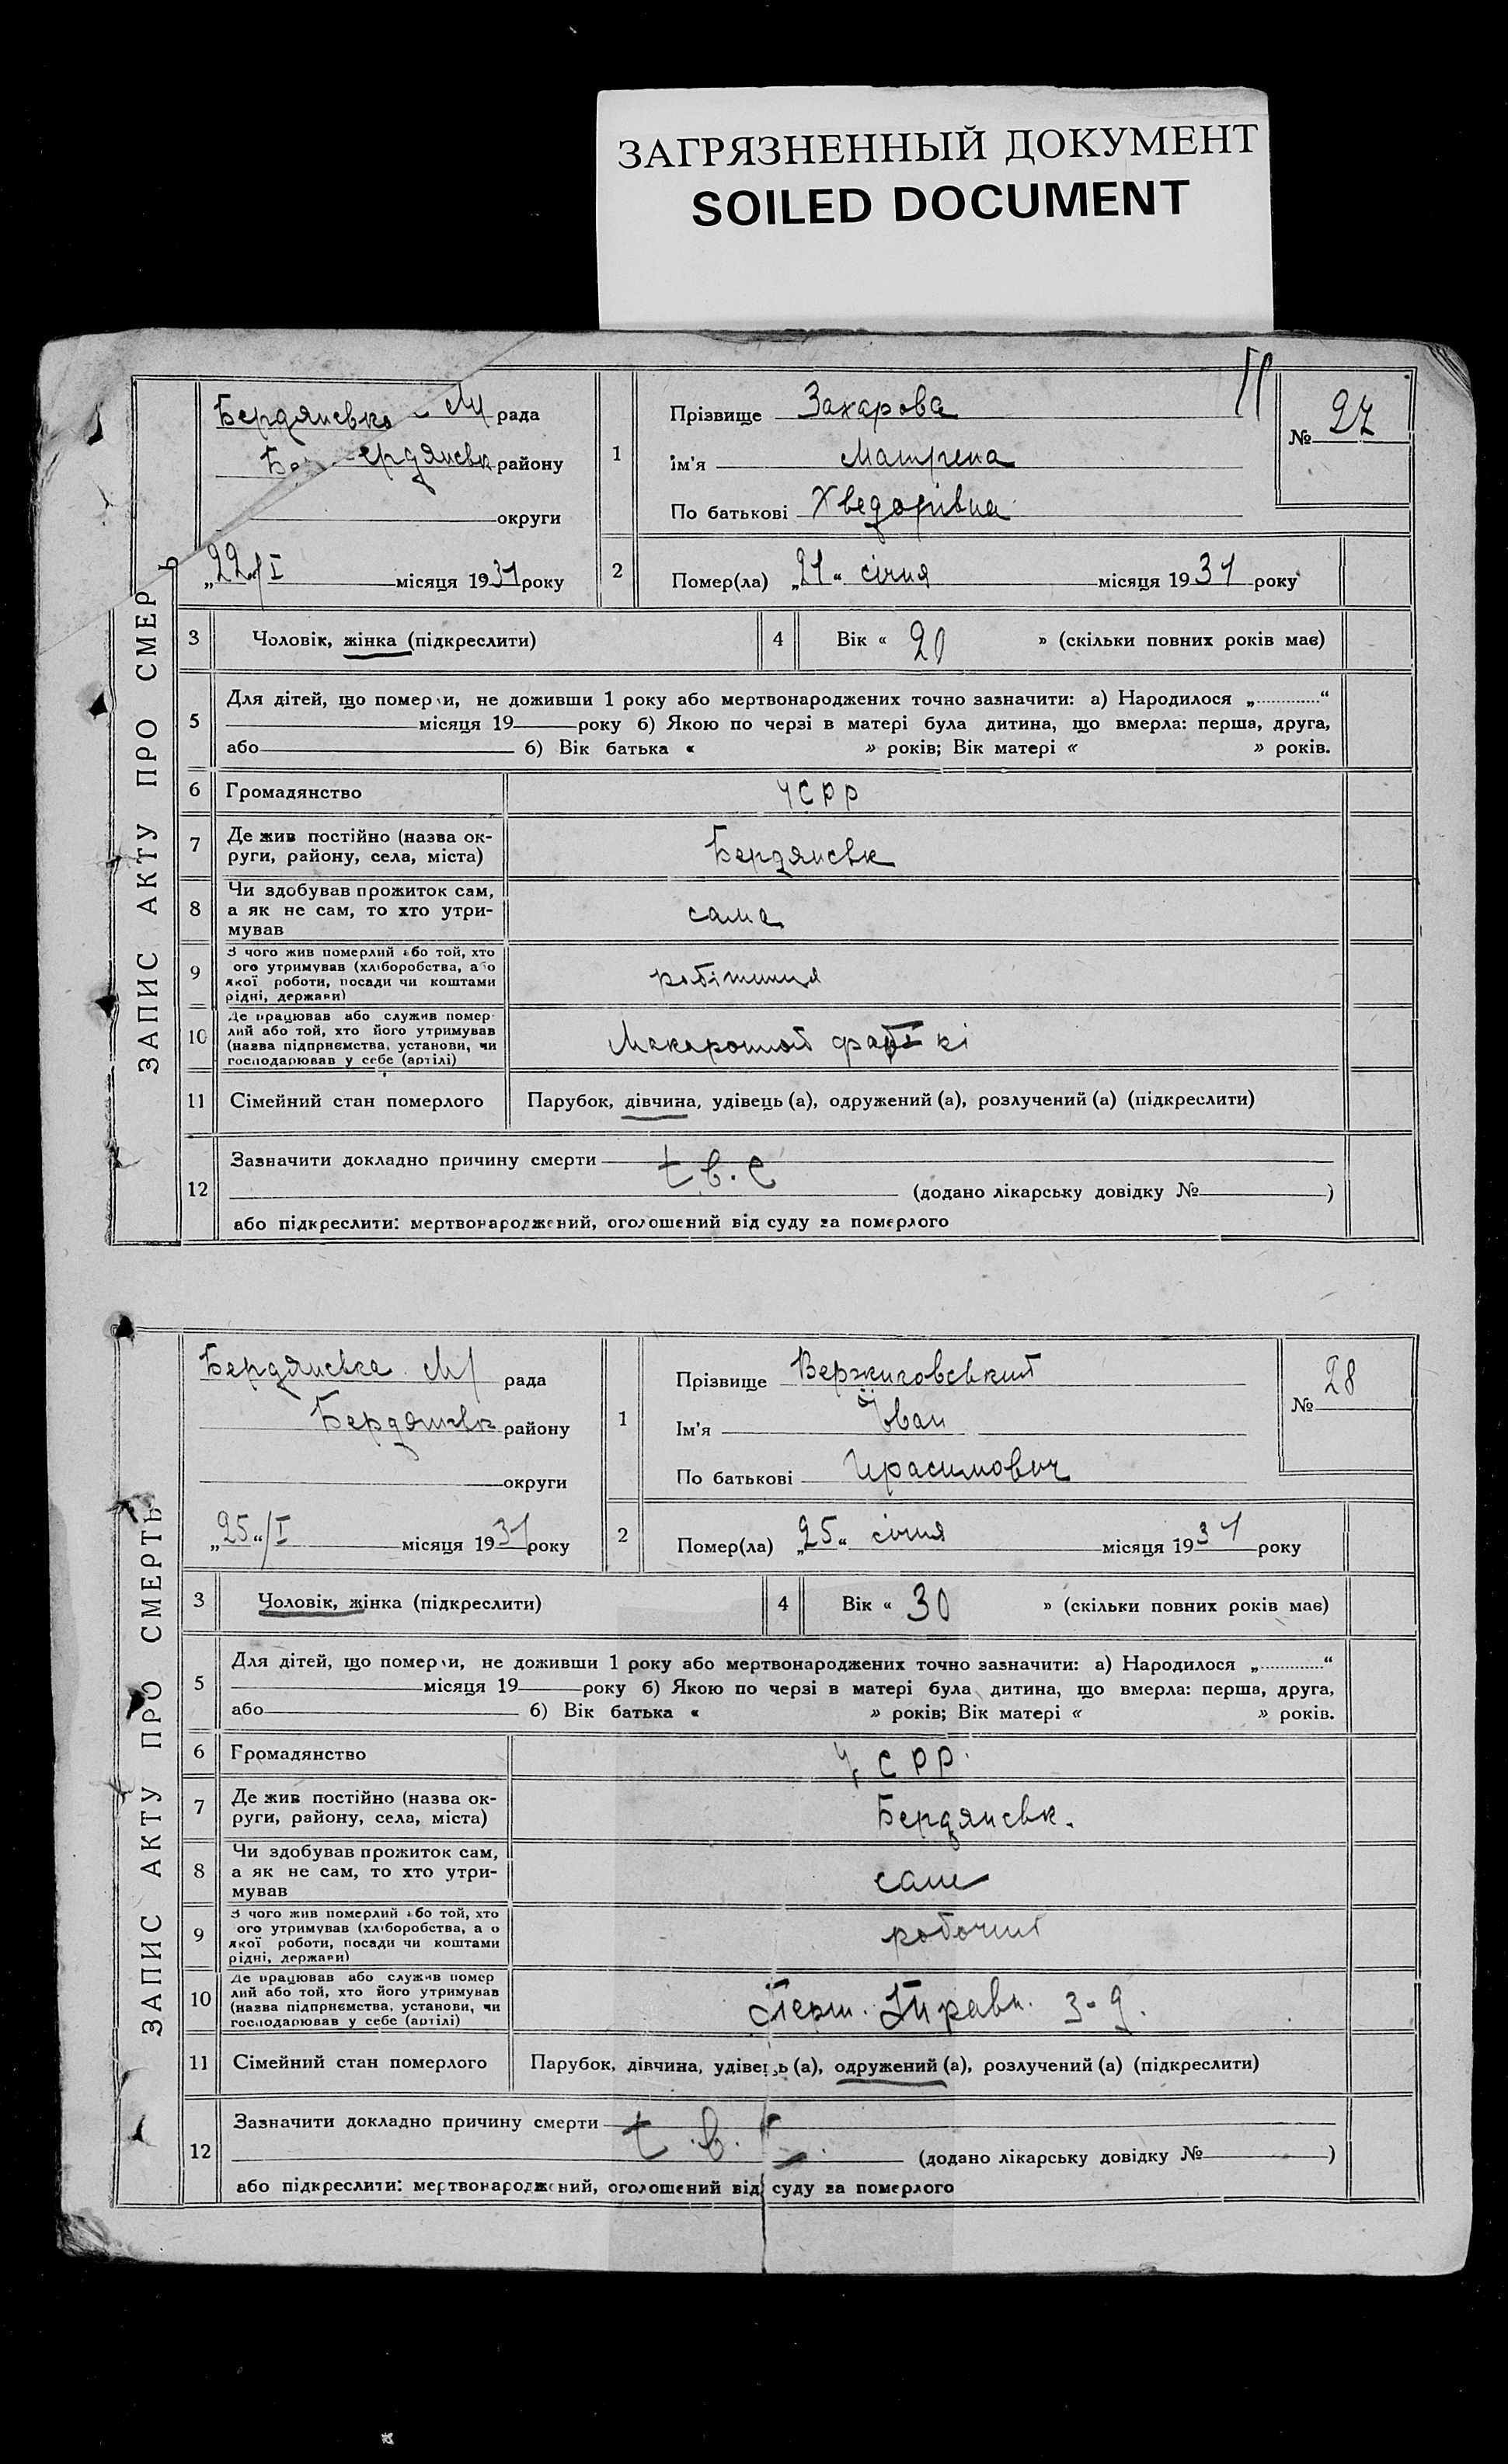 ЗАГРЯЗНЕННЫЙ ДОКУМЕНТ
SOILED DOCUMENT
ЗАПИС АКТУ ПРО СМЕР Ь
Бердянська рада
Бердянськ району
округи
„22“/I місяця 1931 року
1
Прізвище Захарова
Ім'я Матрена
По батькові Хведорівна
№ 27
2
Помер(ла) „21“ січня місяця 1931 року
3 Чоловік, жінка (підкреслити)
4 Вік « 20 » (скільки повних років має)
5
Для дітей, що померли, не доживши 1 року або мертвонароджених точно зазначити: а) Народилося „............“
місяця 19 року б) Якою по черзі в матері була дитина, що вмерла: перша, друга,
або б) Вік батька « » років; Вік матері « » років.
6 Громадянство УСРР
7 Де жив постійно (назва ок-
руги, району, села, міста) Бердянськ
8 Чи здобував прожиток сам,
а як не сам, то хто утри- сама
мував
9 З чого жив померлий або той, хто
ого утримував (хліборобства, або
якої роботи, посади чи коштами робітниця
рідні, держави)
10 Де працював або служив помер
лий або той, хто його утримував
(назва підприємства, установи, чи Макаронной фабрікі
господарював у себе (артілі)
11 Сімейний стан померлого Парубок, дівчина, удівець (а), одружений (а), розлучений (а) (підкреслити)
12
Зазначити докладно причину смерти t.b.c
(додано лікарську довідку № )
або підкреслити: мертвонароджений, оголошений від суду за померлого
ЗАПИС АКТУ ПРО СМЕРТЬ
Бердянська рада
Бердянськ району
округи
„25“/I місяця 1931 року
1
Прізвище Вержиковський
Ім'я Іван
По батькові Ирасимович
№ 28
2
Помер(ла) „25“ січня місяця 1931 року
3 Чоловік, жінка (підкреслити)
4 Вік « 30 » (скільки повних років має)
5
Для дітей, що померли, не доживши 1 року або мертвонароджених точно зазначити: а) Народилося „............“
місяця 19 року б) Якою по черзі в матері була дитина, що вмерла: перша, друга,
або б) Вік батька « » років; Вік матері « » років.
6 Громадянство УСРР
7 Де жив постійно (назва ок-
руги, району, села, міста) Бердянськ.
8 Чи здобував прожиток сам,
а як не сам, то хто утри- сам
мував
9 З чого жив померлий або той, хто
ого утримував (хліборобства, а о
якої роботи, посади чи коштами робочий
рідні, держави)
10 Де працював або служив помер
лий або той, хто його утримував
(назва підприємства, установи, чи Перш. Травн. з-д.
господарював у себе (артілі)
11 Сімейний стан померлого Парубок, дівчина, удівець (а), одружений (а), розлучений (а) (підкреслити)
12
Зазначити докладно причину смерти t.b.
(додано лікарську довідку № )
або підкреслити: мертвонароджений, оголошений від суду за померлого